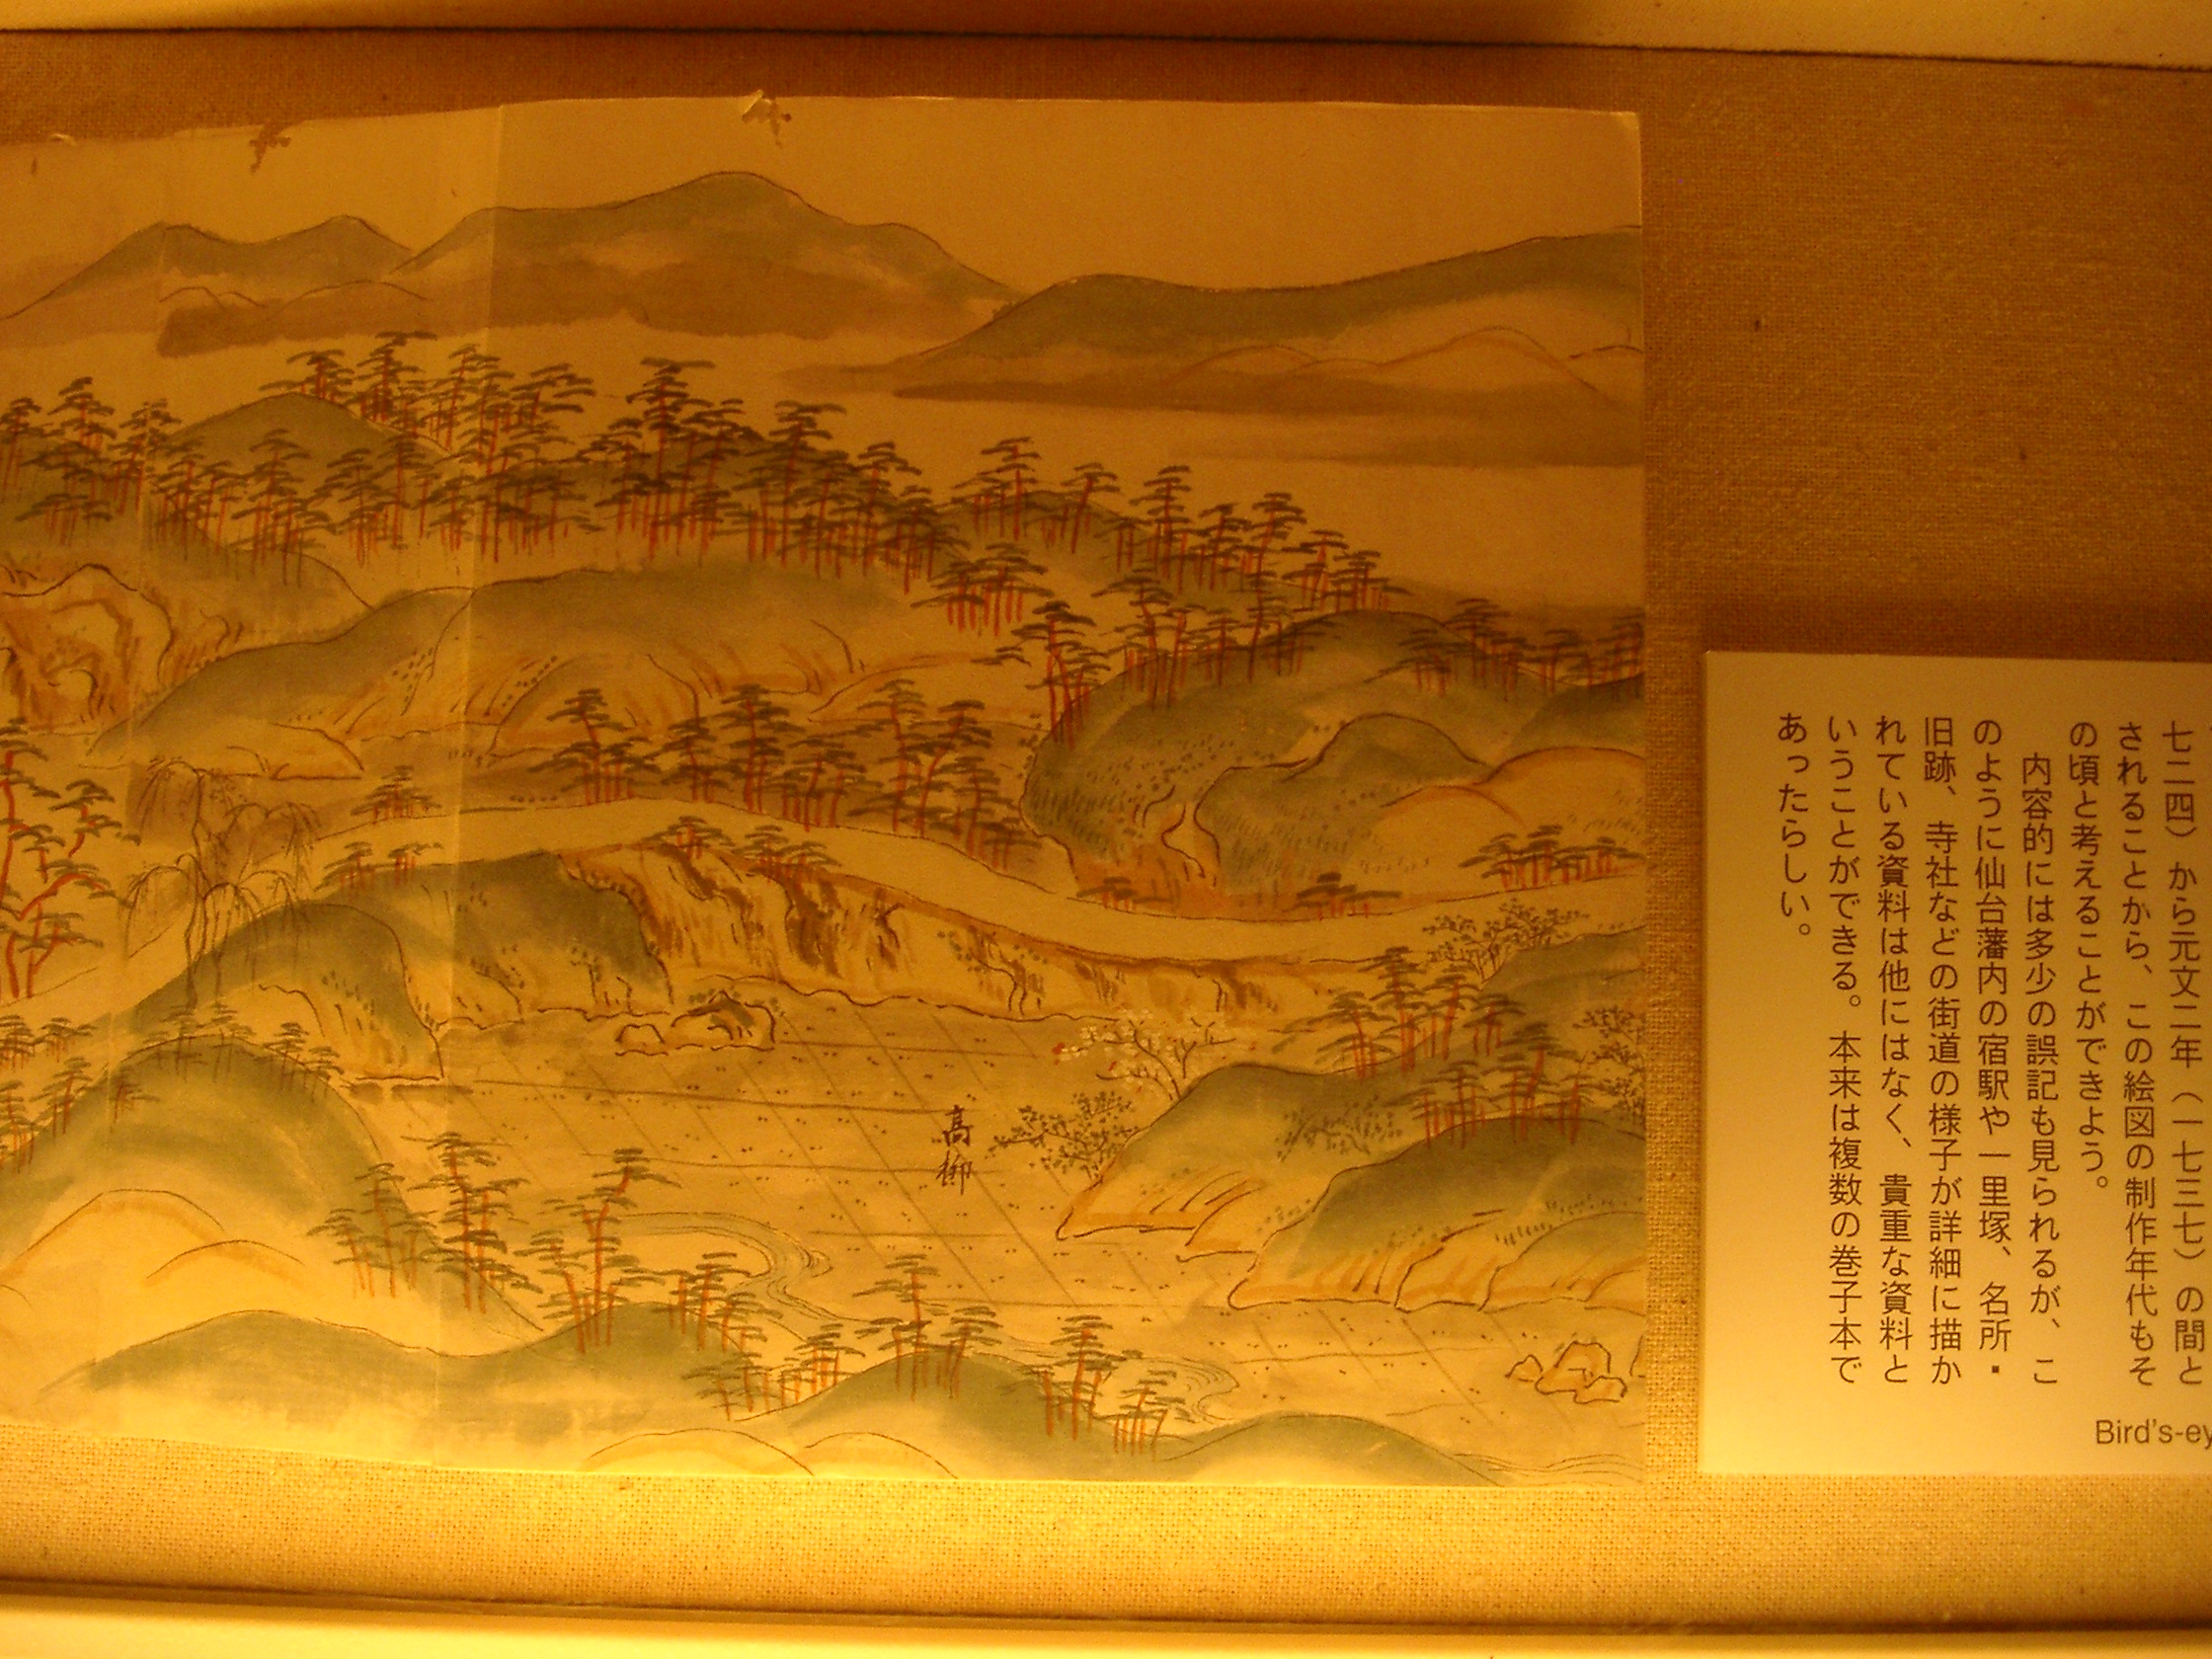 七二四）から元文二年（一七三七）の間と
されることから、この絵図の制作年代もそ
の頃と考えることができよう。
内容的には多少の誤記も見られるが、こ
のように仙台藩内の宿駅や一里塚、名所・
旧跡、寺社などの街道の様子が詳細に描か
れている資料は他にはなく、貴重な資料と
いうことができる。本来は複数の巻子本で
あったらしい。
Bird's-ey
高柳